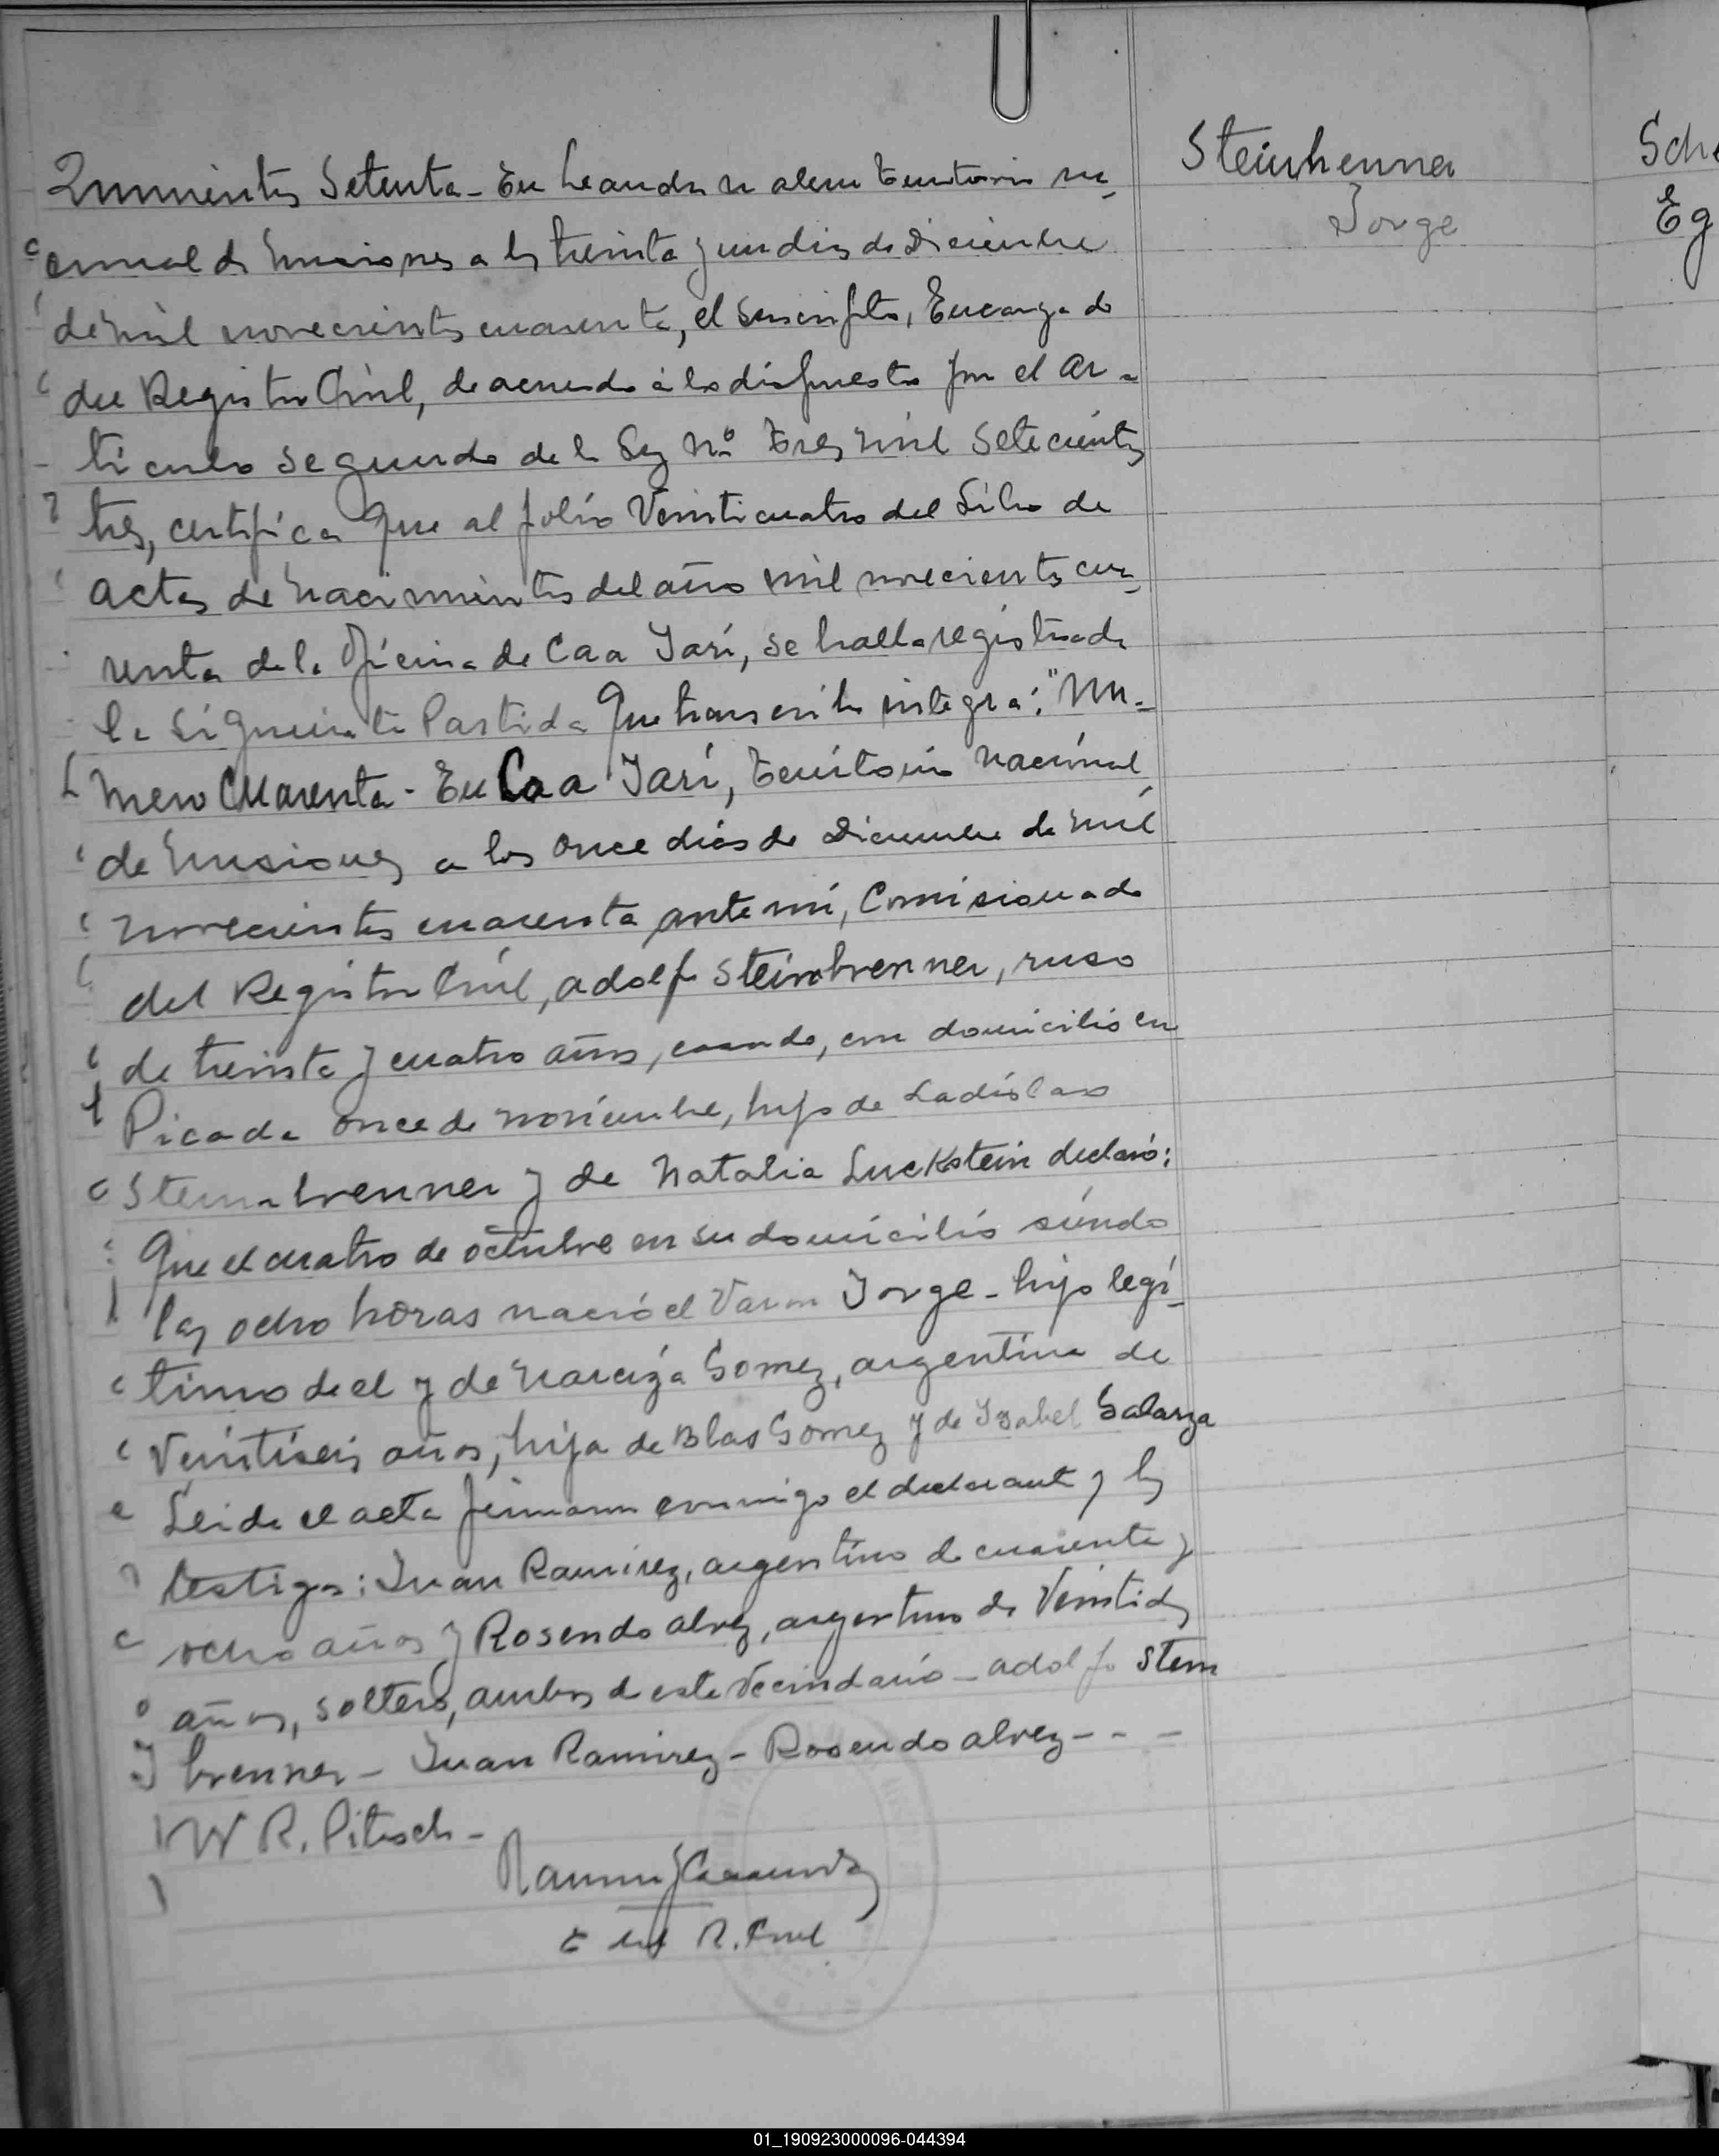 Steinhenner
Jorge
Sche
Eg
Quinientos Setenta - En Leandro N Alem Territorio na-
cional de Misiones a los treinta y un dias de Diciembre
de mil novecientos cuarenta, el suscripto, Encargado
del Registro Civil, de acuerdo a lo dispuesto por el Ar-
ticulo segundo de la Ley No Tres mil setecientos
tres, certifica que al folio Veinticuatro del Libro de
actas de nacimientos del año mil novecientos cua-
renta de la Oficina de Caa Yarí, se halla registrada
la siguiente Partida que transcribo integra: "Nu-
mero Cuarenta - En Caa Yarí, Territorio Nacional
de Misiones a los once dias de Diciembre de mil
novecientos cuarenta ante mi, Comisionado
del Registro Civil, Adolfo Steinbrenner, ruso
de treinta y cuatro años, casado, con domicilio en
Picada once de noviembre, hijo de Ladislao
Steinbrenner y de Natalia Luckstein declaró:
Que el cuatro de octubre en su domicilio siendo
las ocho horas nació el Varon Jorge - hijo legí-
timo de el y de Narciza Gomez, argentina de
Veintiseis años, hija de Blas Gomez y de Ysabel Galarza
Leida el acta firmaron conmigo el declarante y los
testigos: Juan Ramirez, argentino de cuarenta y
ocho años y Rosendo Alvez, argentino de Veintidos
años, soltero, ambos de este Vecindario - Adolfo Stein
brenner - Juan Ramirez - Rosendo Alvez - - -
W R. Pitsch -
E del R. Civil
01_190923000096-044394